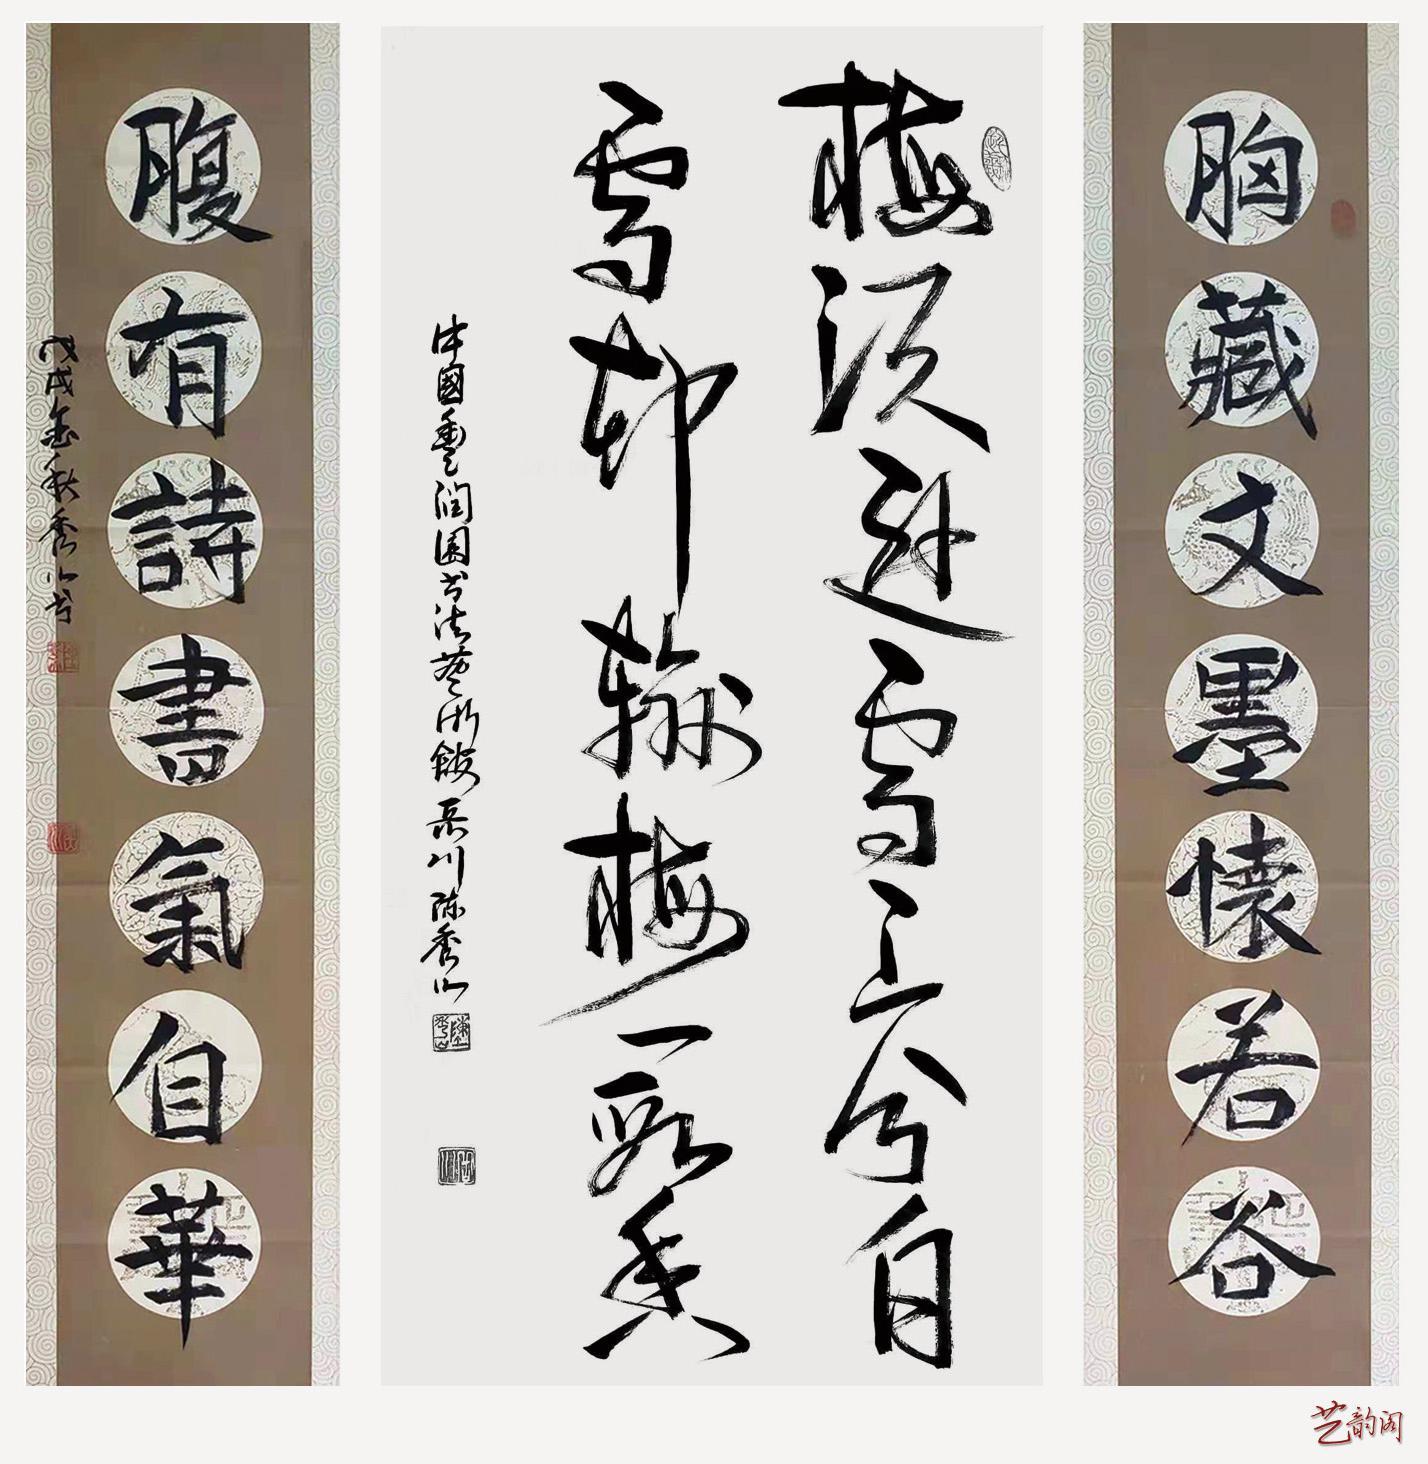 胸藏文墨懷若谷
梅須遜雪三分白
雪却輸梅一段香
中國潤園书法藝術館川陈秀山
腹有詩書氣自華
戊戌金秋秀山书
艺韵阁